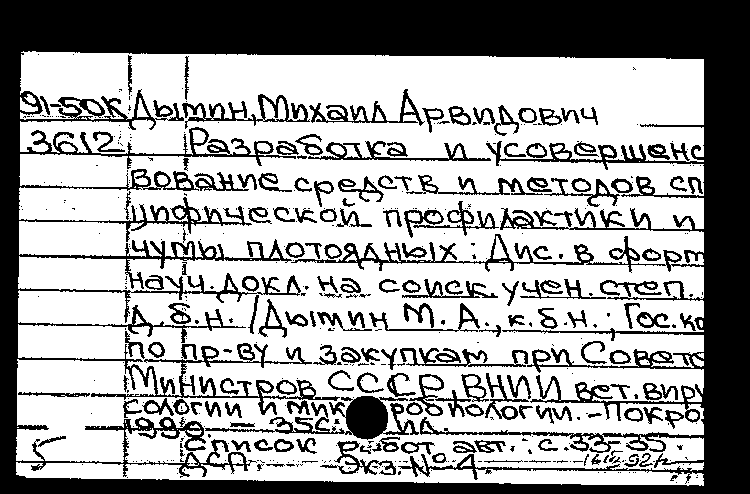 91-50К Дымин, Михаил Арвидович
3612 Разработка и усовершенс
вование средств и методов сп
цифической профилактики и
чумы плотоядных: Дис. в форм
науч. докл. на соиск. учен. степ.
д.б.н. /Дымин М. А., к.б.н.; Гос. ко
по пр-ву и закупкам при Совете
Министров СССР, ВНИИ вет. виру
сологии и микробиологии. - Покро
1990 - 35с. ил.
5 Список работ авт.: с. 33-35.
ДСП. Экз. № 4.